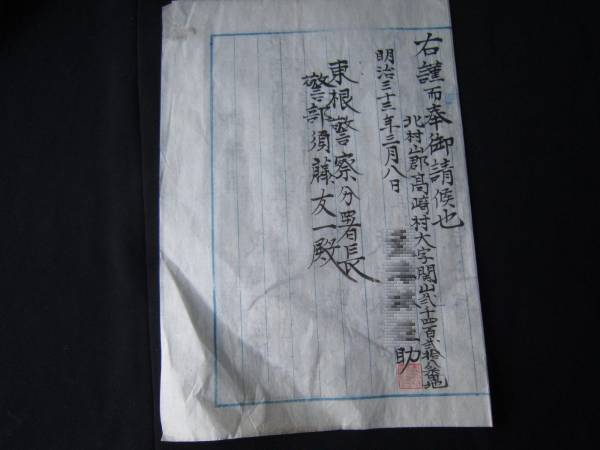 右謹而奉御請候也
北村山郡高崎村大字関山弐千四百弐拾八番地
助
明治三十三年三月八日
東根警察分署長
警部須藤友一殿